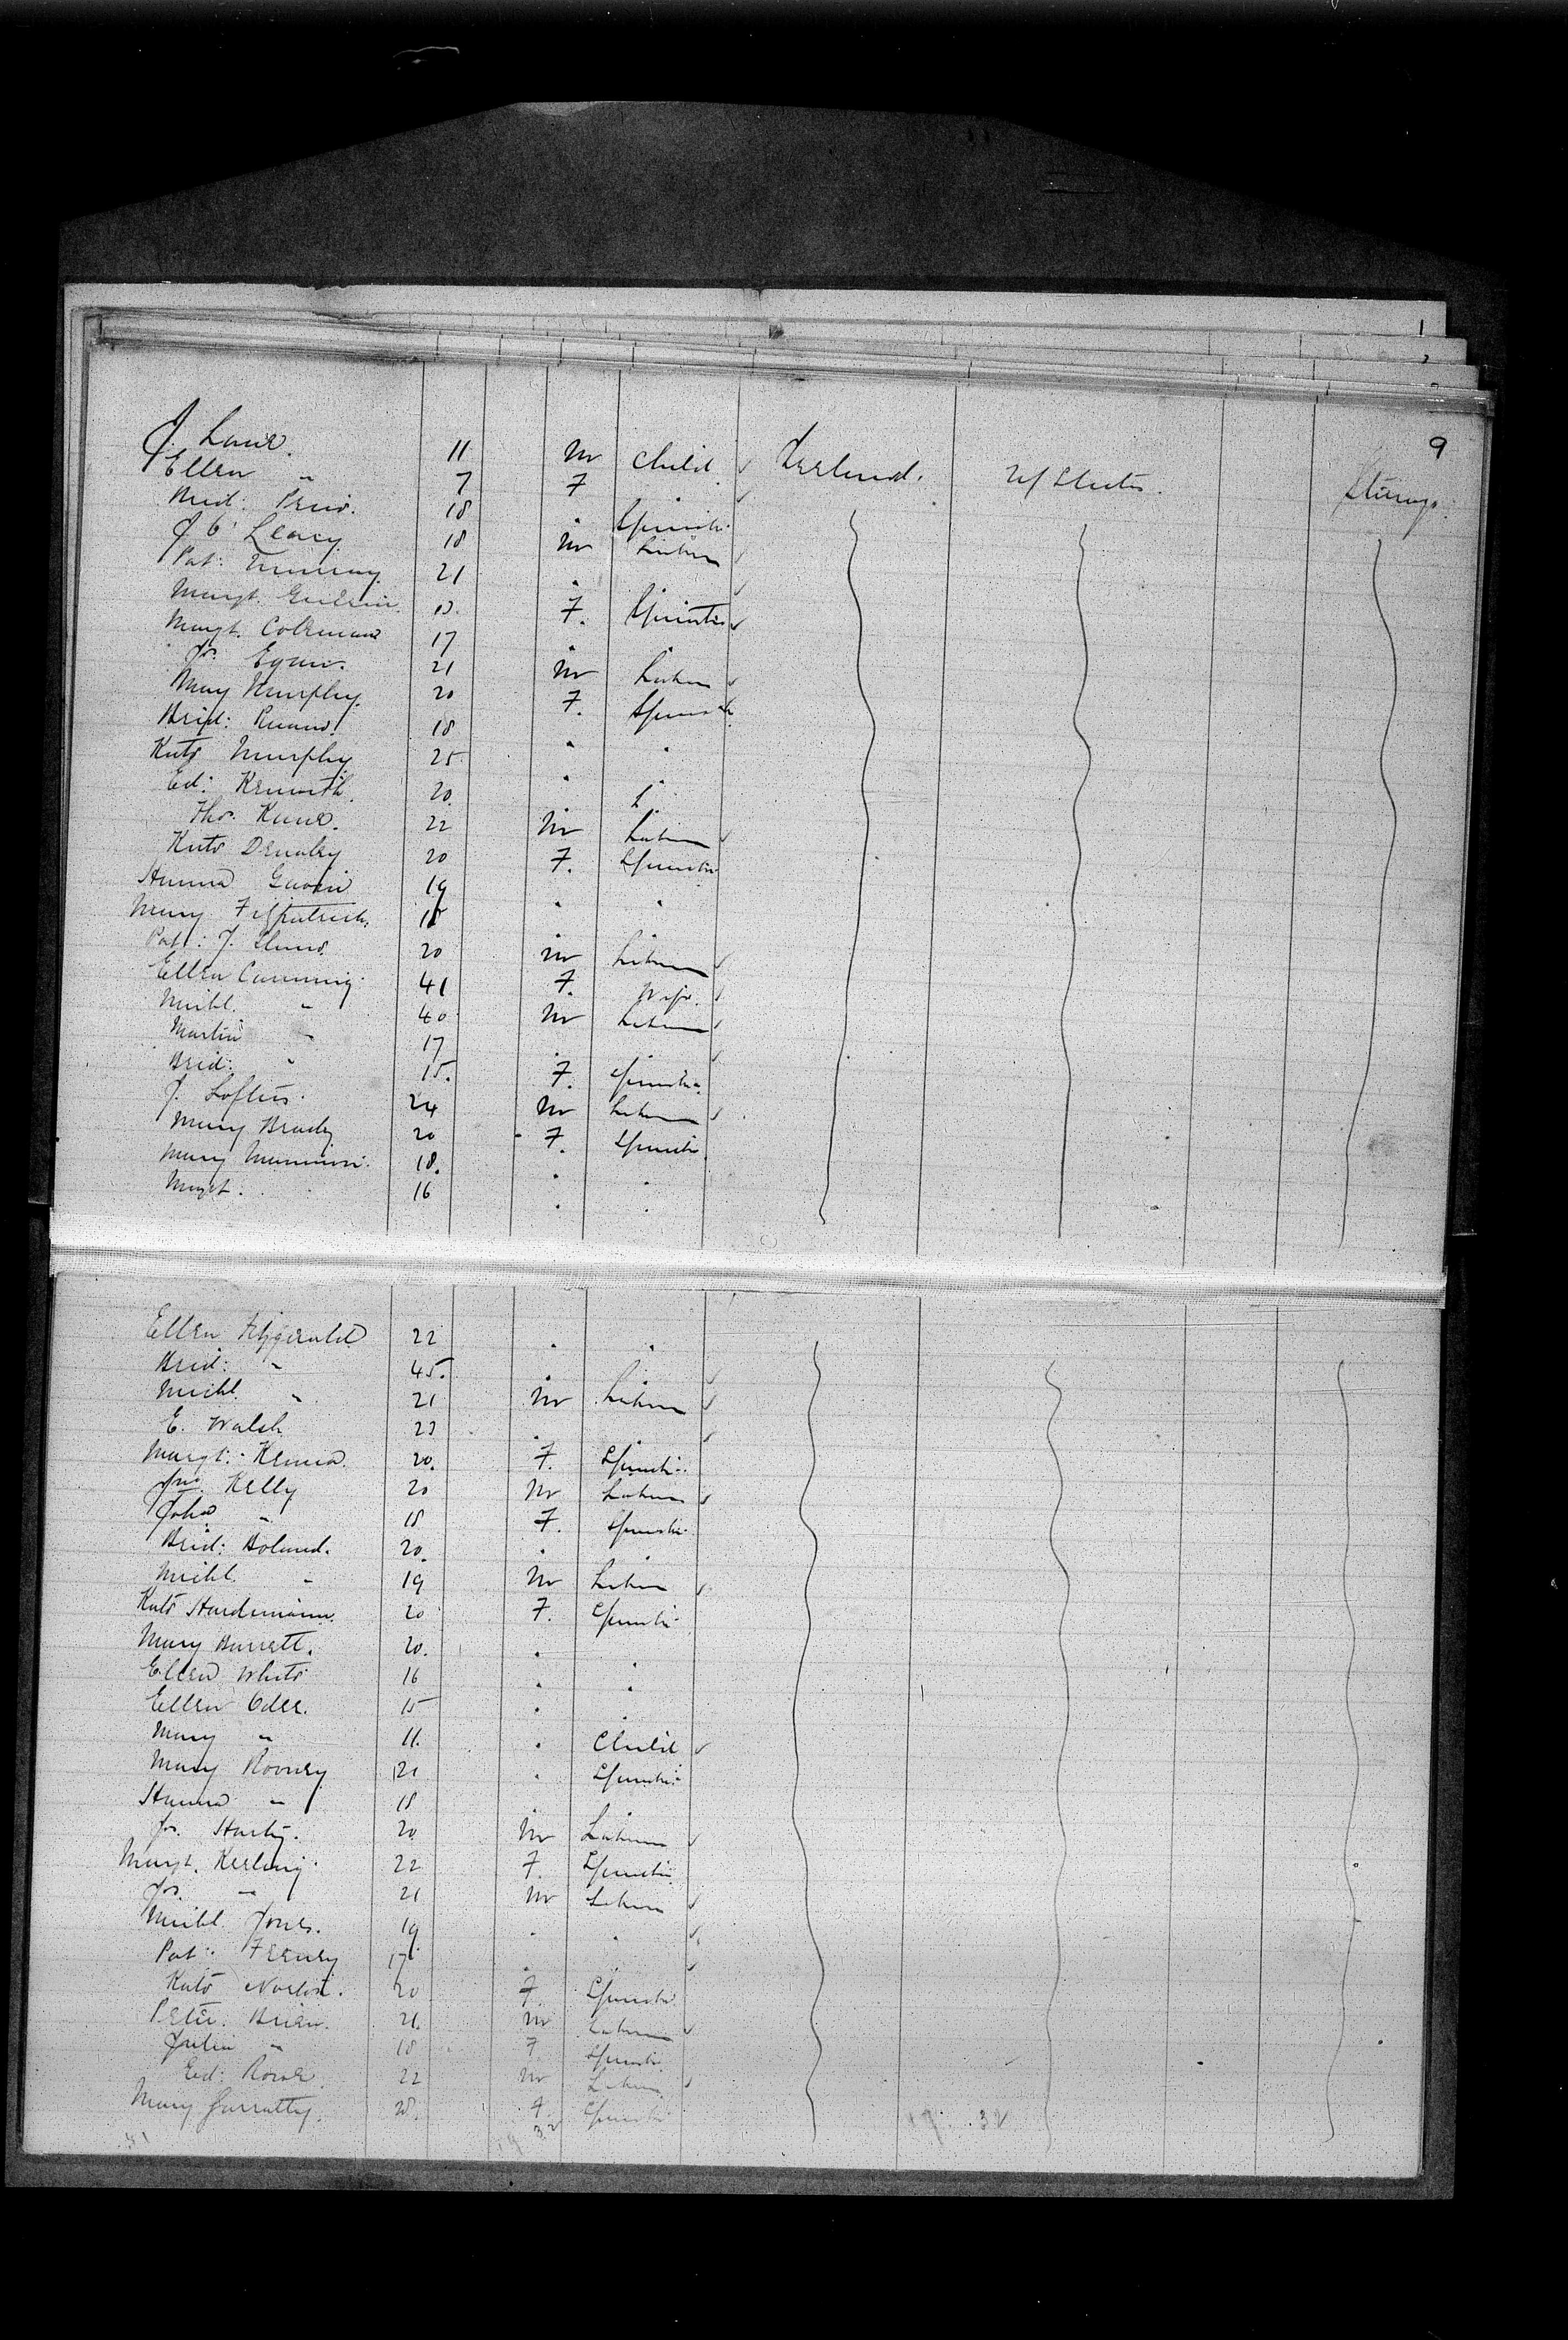 1
9
J. Lane. 11 M Child Ireland. U/States. Steerage.
Ellen " 7 F
18 . Spinster
J. O'Leary 18 M Laborer
Pat: Murray. 21 .
Margt. 18. F. Spinster
Margt. Coleman 17 .
Js. Egan. 21 M Laborer
Mary Murphy. 20 F. Spinster
Brid: Ruane. 18 . .
Kate Murphy 25 . .
Ed: 20. . L.
Thos. Kane. 22 M Laborer
Kate 20 F. Spinster
Hanna Gavin 19 . .
Mary Fitzpatrick. 18 .
Pat: J. 20 M Laborer
Ellen Cumming 41 F. Wife.
Michl. " 40 M Laborer
Martin " 17 .
Brid: " 15. F. Spinster
J. Loftus. 24 M Laborer
Mary Brady 20 F. Spinster
Mary 18. . .
Margt. . . 16 . .
Ellen Fitzgerald 22 . .
Brid: " 45. . .
Michl. " 21 M Laborer
E. Walsh 23 . .
Margt: Kenna. 20. F. Spinster
Jno. Kelly 20 M Laborer
Joha " 18 F. Spinster
Brid: Boland. 20. . .
Michl. " 19 M Laborer
Kate Hardeman. 20 F. Spinster
Mary Barrett. 20. .
Ellen White 16 . .
Ellen Oder. 15 . .
Mary " 11. . Child
Mary Rooney 21 . Spinster
Hanna " 18 . .
Js. Harty. 20 M Laborer
Margt. Kerling. 22 F. Spinster
Js. " 21 M Laborer
Michl. Jones. 19 . .
Pat: Feeney 17 . .
Kate Norton. 20 F. Spinster
Peter. Brien. 21. M Laborer
Julia " 18 F. Spinster
Ed: Rowe. 22 M Laborer
Mary Garratty. 20. F. Spinster
32 19 32